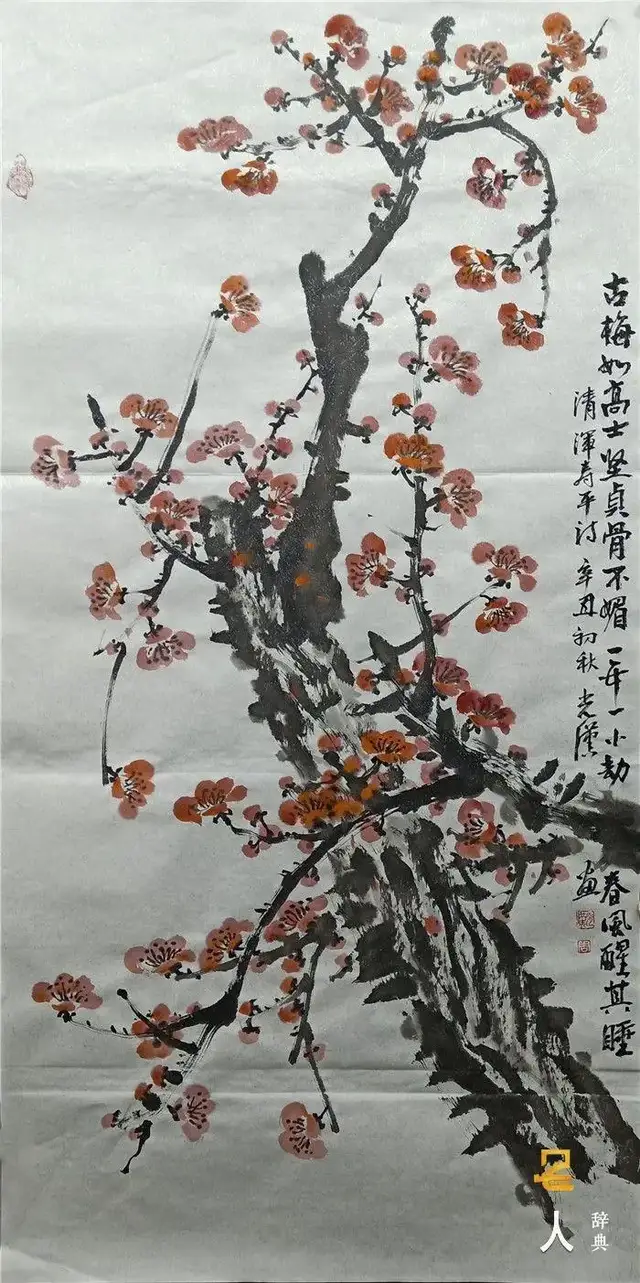 古梅如高士坚贞骨不媚一年一小劫春风醒其睡
清浑寿平诗辛丑初秋光汉画
名人
辞典